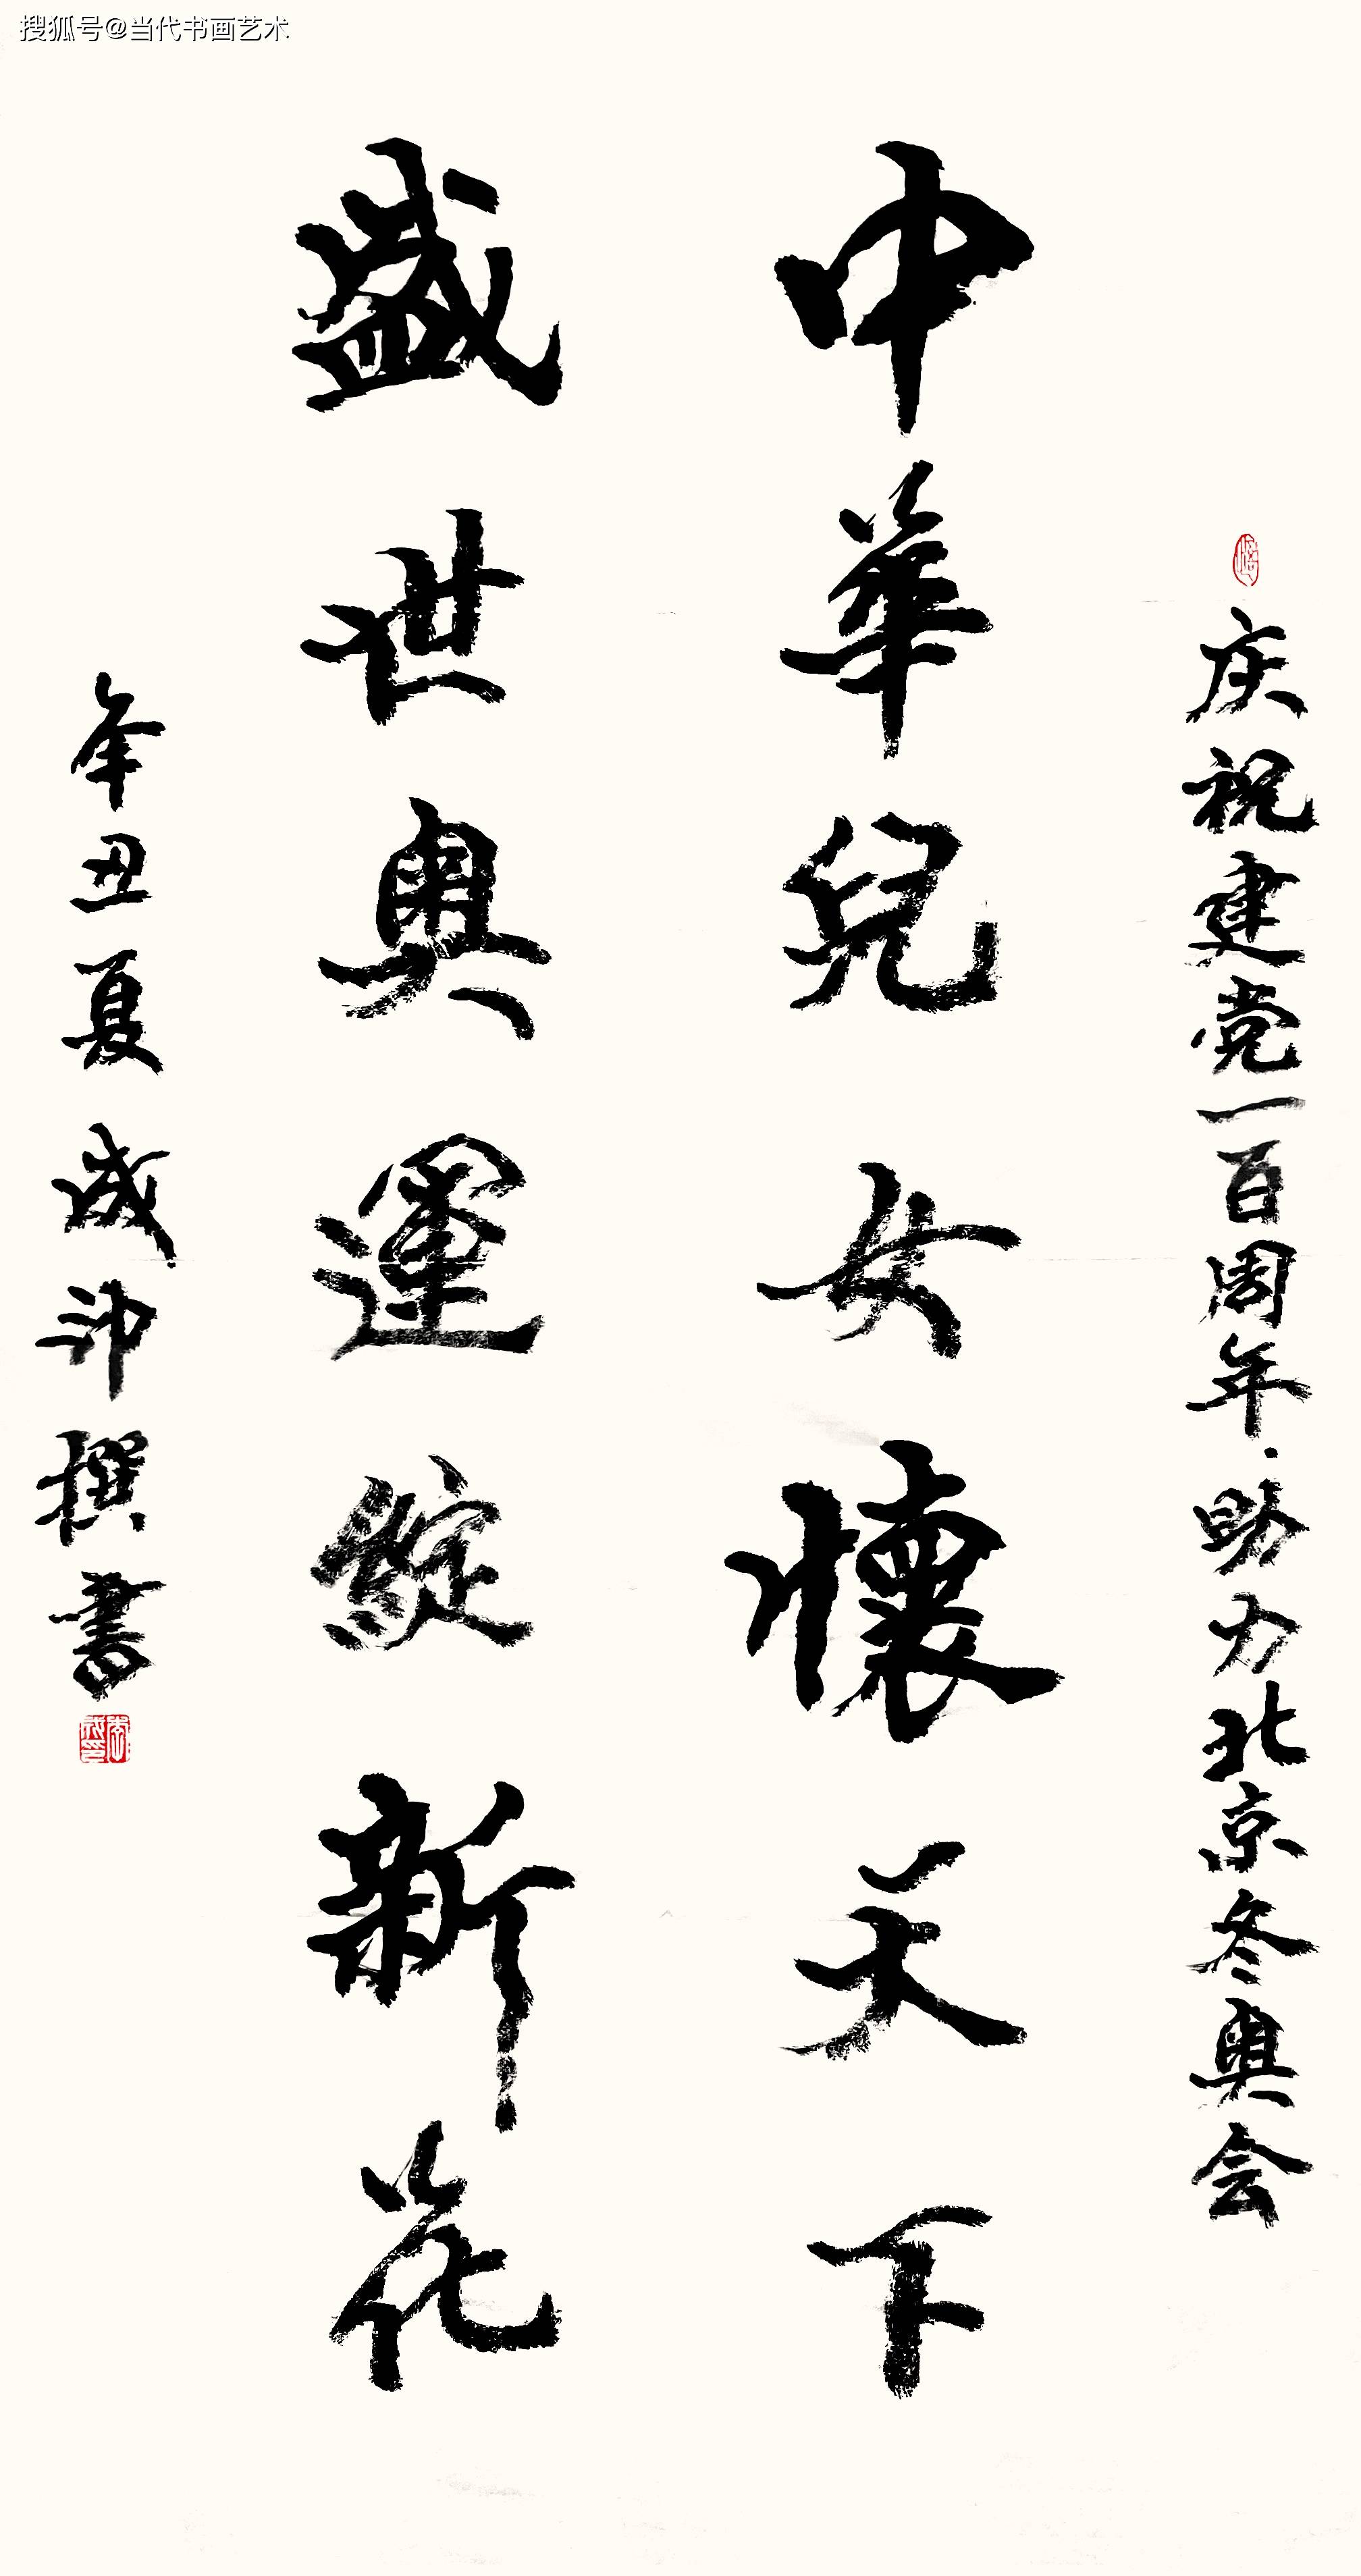 搜狐号@当代书画艺术
庆祝建党一百周年·助力北京冬奥会
中華兒女懷天下
盛世奥運綻新花
辛丑夏 成沖撰書